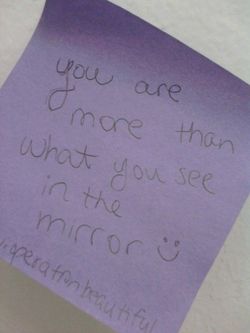 you are
more than
what you see
in the
mirror :)
operationbeautiful